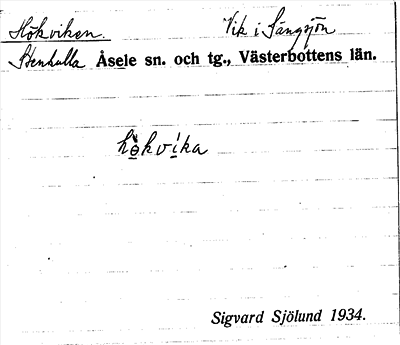 Hökviken. Vik i Långsjön
Stenkulla Åsele sn. och tg., Västerbottens län.
hö̀kvika
Sigvard Sjölund 1934.